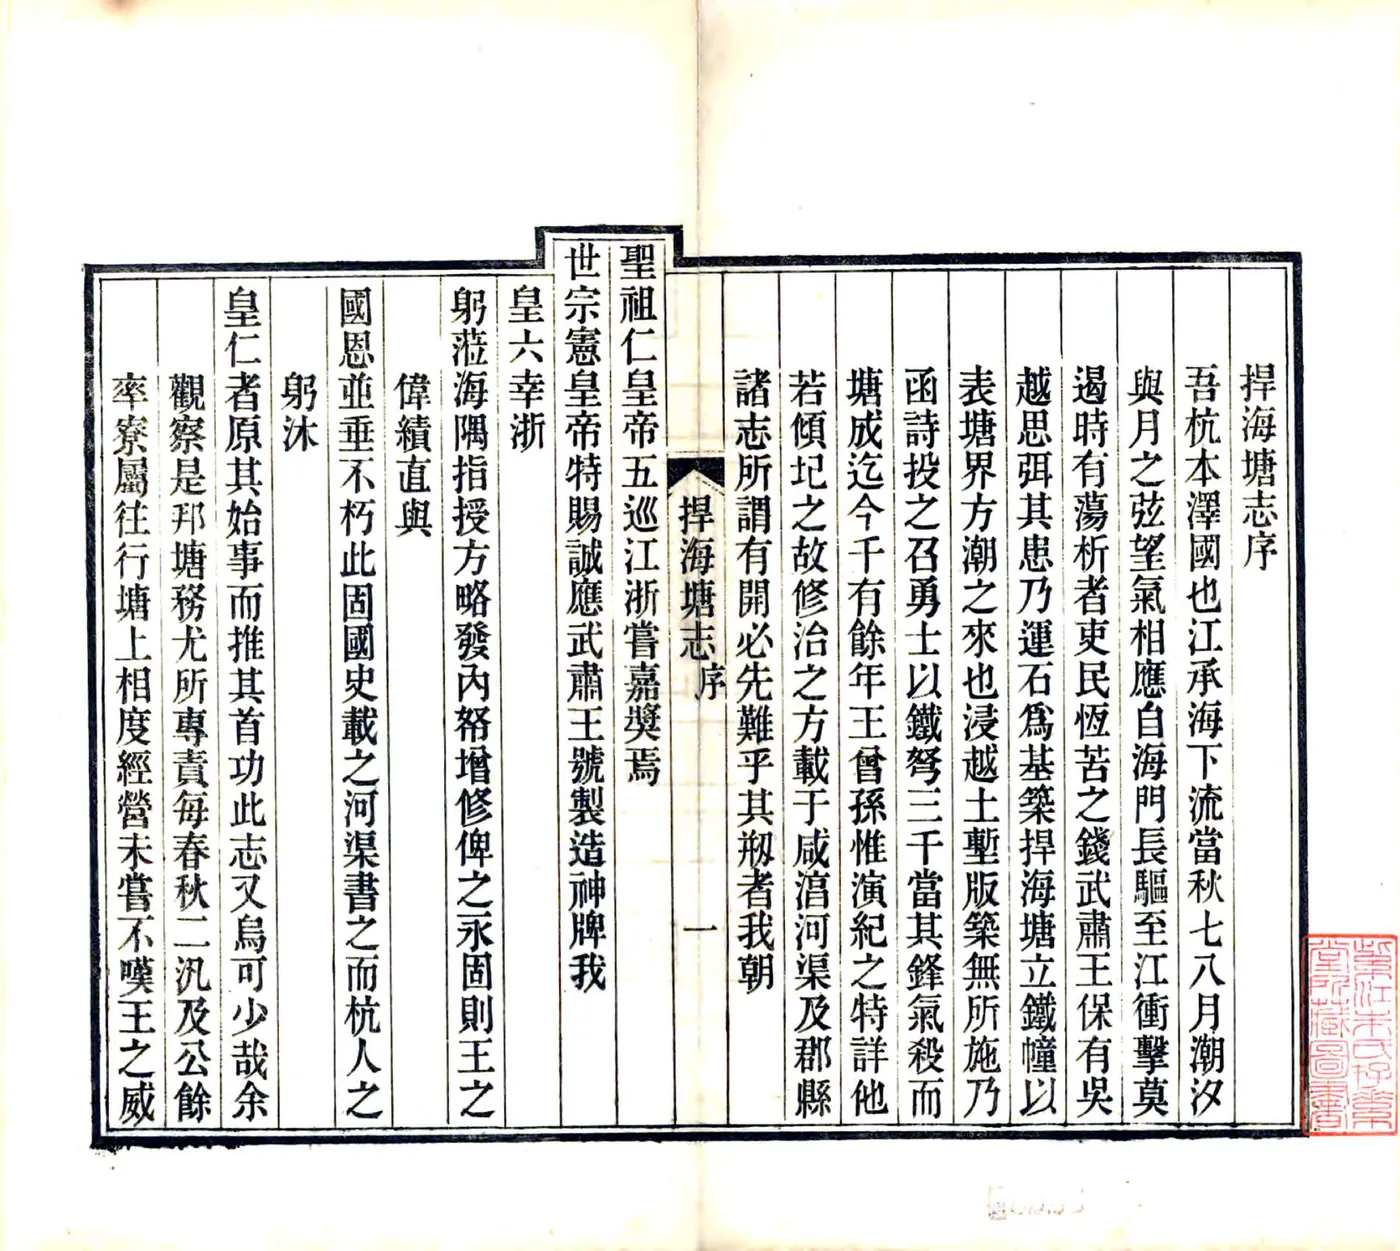 捍海塘志序
吾杭本澤國也江承海下流當秋七八月潮汐
與月之弦望氣相應自海門長驅至江衝擊莫
遏時有蕩析者吏民恆苦之錢武肅王保有吳
越思弭其患乃運石爲基築捍海塘立鐵幢以
表塘界方潮之來也浸越土塹版築無所施乃
函詩投之召勇士以鐵弩三千當其鋒氣殺而
塘成迄今千有餘年王曾孫惟演紀之特詳他
若傾圮之故修治之方載于咸淳河渠及郡縣
諸志所謂有開必先難乎其剏者我朝
捍海塘志 序
一
聖祖仁皇帝五巡江浙嘗嘉獎焉
世宗憲皇帝特賜誠應武肅王號製造神牌我
皇六幸浙
躬蒞海隅指授方略發內帑增修俾之永固則王之
偉績直與
國恩並垂不朽此固國史載之河渠書之而杭人之
躬沐
皇仁者原其始事而推其首功此志又烏可少哉余
觀察是邦塘務尤所專責每春秋二汛及公餘
率寮屬往行塘上相度經營未嘗不嘆王之威
紫江朱氏存素
堂所藏圖書